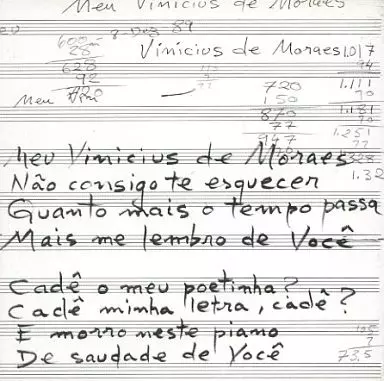 Meu Vinicius de Moraes
8 Dez 89
Vinicius de Moraes
600
28
628
92
720
Meu
720
150
870
77
947
1.017
94
1.111
70
1.181
70
1.251
77
1.328
1.32
Meu Vinicius de Moraes
Não consigo te esquecer
Quanto mais o tempo passa
Mais me lembro de Você
Cadê o meu poetinha?
Cadê minha letra, cadê?
E morro neste piano
De saudade de Você
105
7
73,5